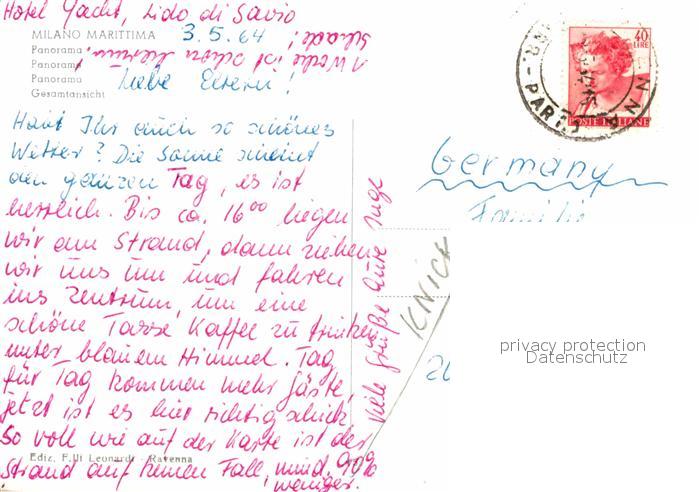 Hotel Yacht, Lido di Savio
MILANO MARITTIMA 3.5.64
Panorama
Panorama
Panorama
Gesamtansicht
1 Woche ist schon herum,
schade!
Liebe Eltern!
Habt Ihr auch so schönes
Wetter? Die Sonne scheint
den ganzen Tag, es ist
herrlich. Bis ca. 16⁰⁰ liegen
wir am Strand, dann ziehen
wir uns um und fahren
ins Zentrum, um eine
schöne Tasse Kaffee zu trinken
unter blauem Himmel. Tag
für Tag kommen mehr Gäste,
jetzt ist es hier richtig schick.
So voll wie auf der Karte ist der
Strand auf keinen Fall, mind. 90%
weniger.
Ediz. F.lli Leonardi - Ravenna
Viele Grüße Eure Inge
40
LIRE
POSTE ITALIANE
Germany
Familie
KNICK
privacy protection
Datenschutz